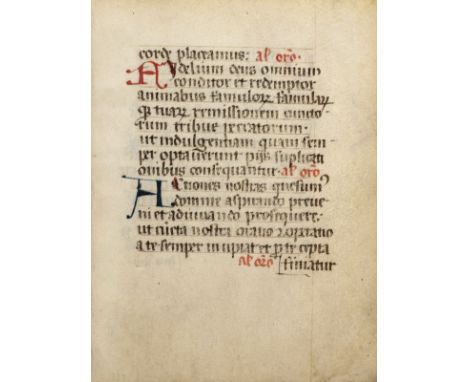 corde placeamus: al' orō.
Fidelium deus omnium
conditor et redemptor
animabus famulorꝝ famularꝝ
qꝫ tuarꝝ remissionem cuncto
rum tribue peccatorum.
ut indulgentiam quam sem
per optaverunt pijs suplicati
onibus consequantur. al' orō
Actiones nostras quesumꝰ
domine aspirando preve
ni et adiuvando prosequere.
ut cūcta nostra oratio ⁊ operatio
a te semper incipiat et ꝑ te cepta
al' orō finiatur